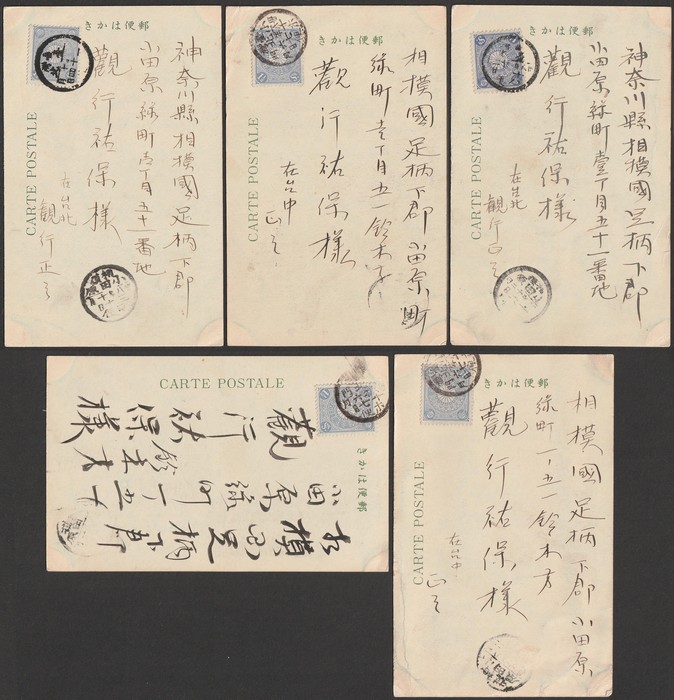 郵便はかき
CARTE POSTALE
神奈川縣相摸國足柄下郡
小田原緑町壹丁目五十一番地
觀行祐保様
在台北
觀行正三
郵便はかき
CARTE POSTALE
相摸國足柄下郡小田原町
緑町壹丁目五一鈴木方
觀行祐保様
在台中
正三
郵便はかき
CARTE POSTALE
神奈川縣相摸國足柄下郡
小田原緑町壹丁目五十一番地
觀行祐保様
在台北
觀行正三
郵便はかき
CARTE POSTALE
相摸国足柄下郡
小田原緑町一ノ五一
鈴木方
觀行祐保様
郵便はかき
CARTE POSTALE
相摸國足柄下郡小田原
緑町一ノ五一鈴木方
觀行祐保様
在台中
正三